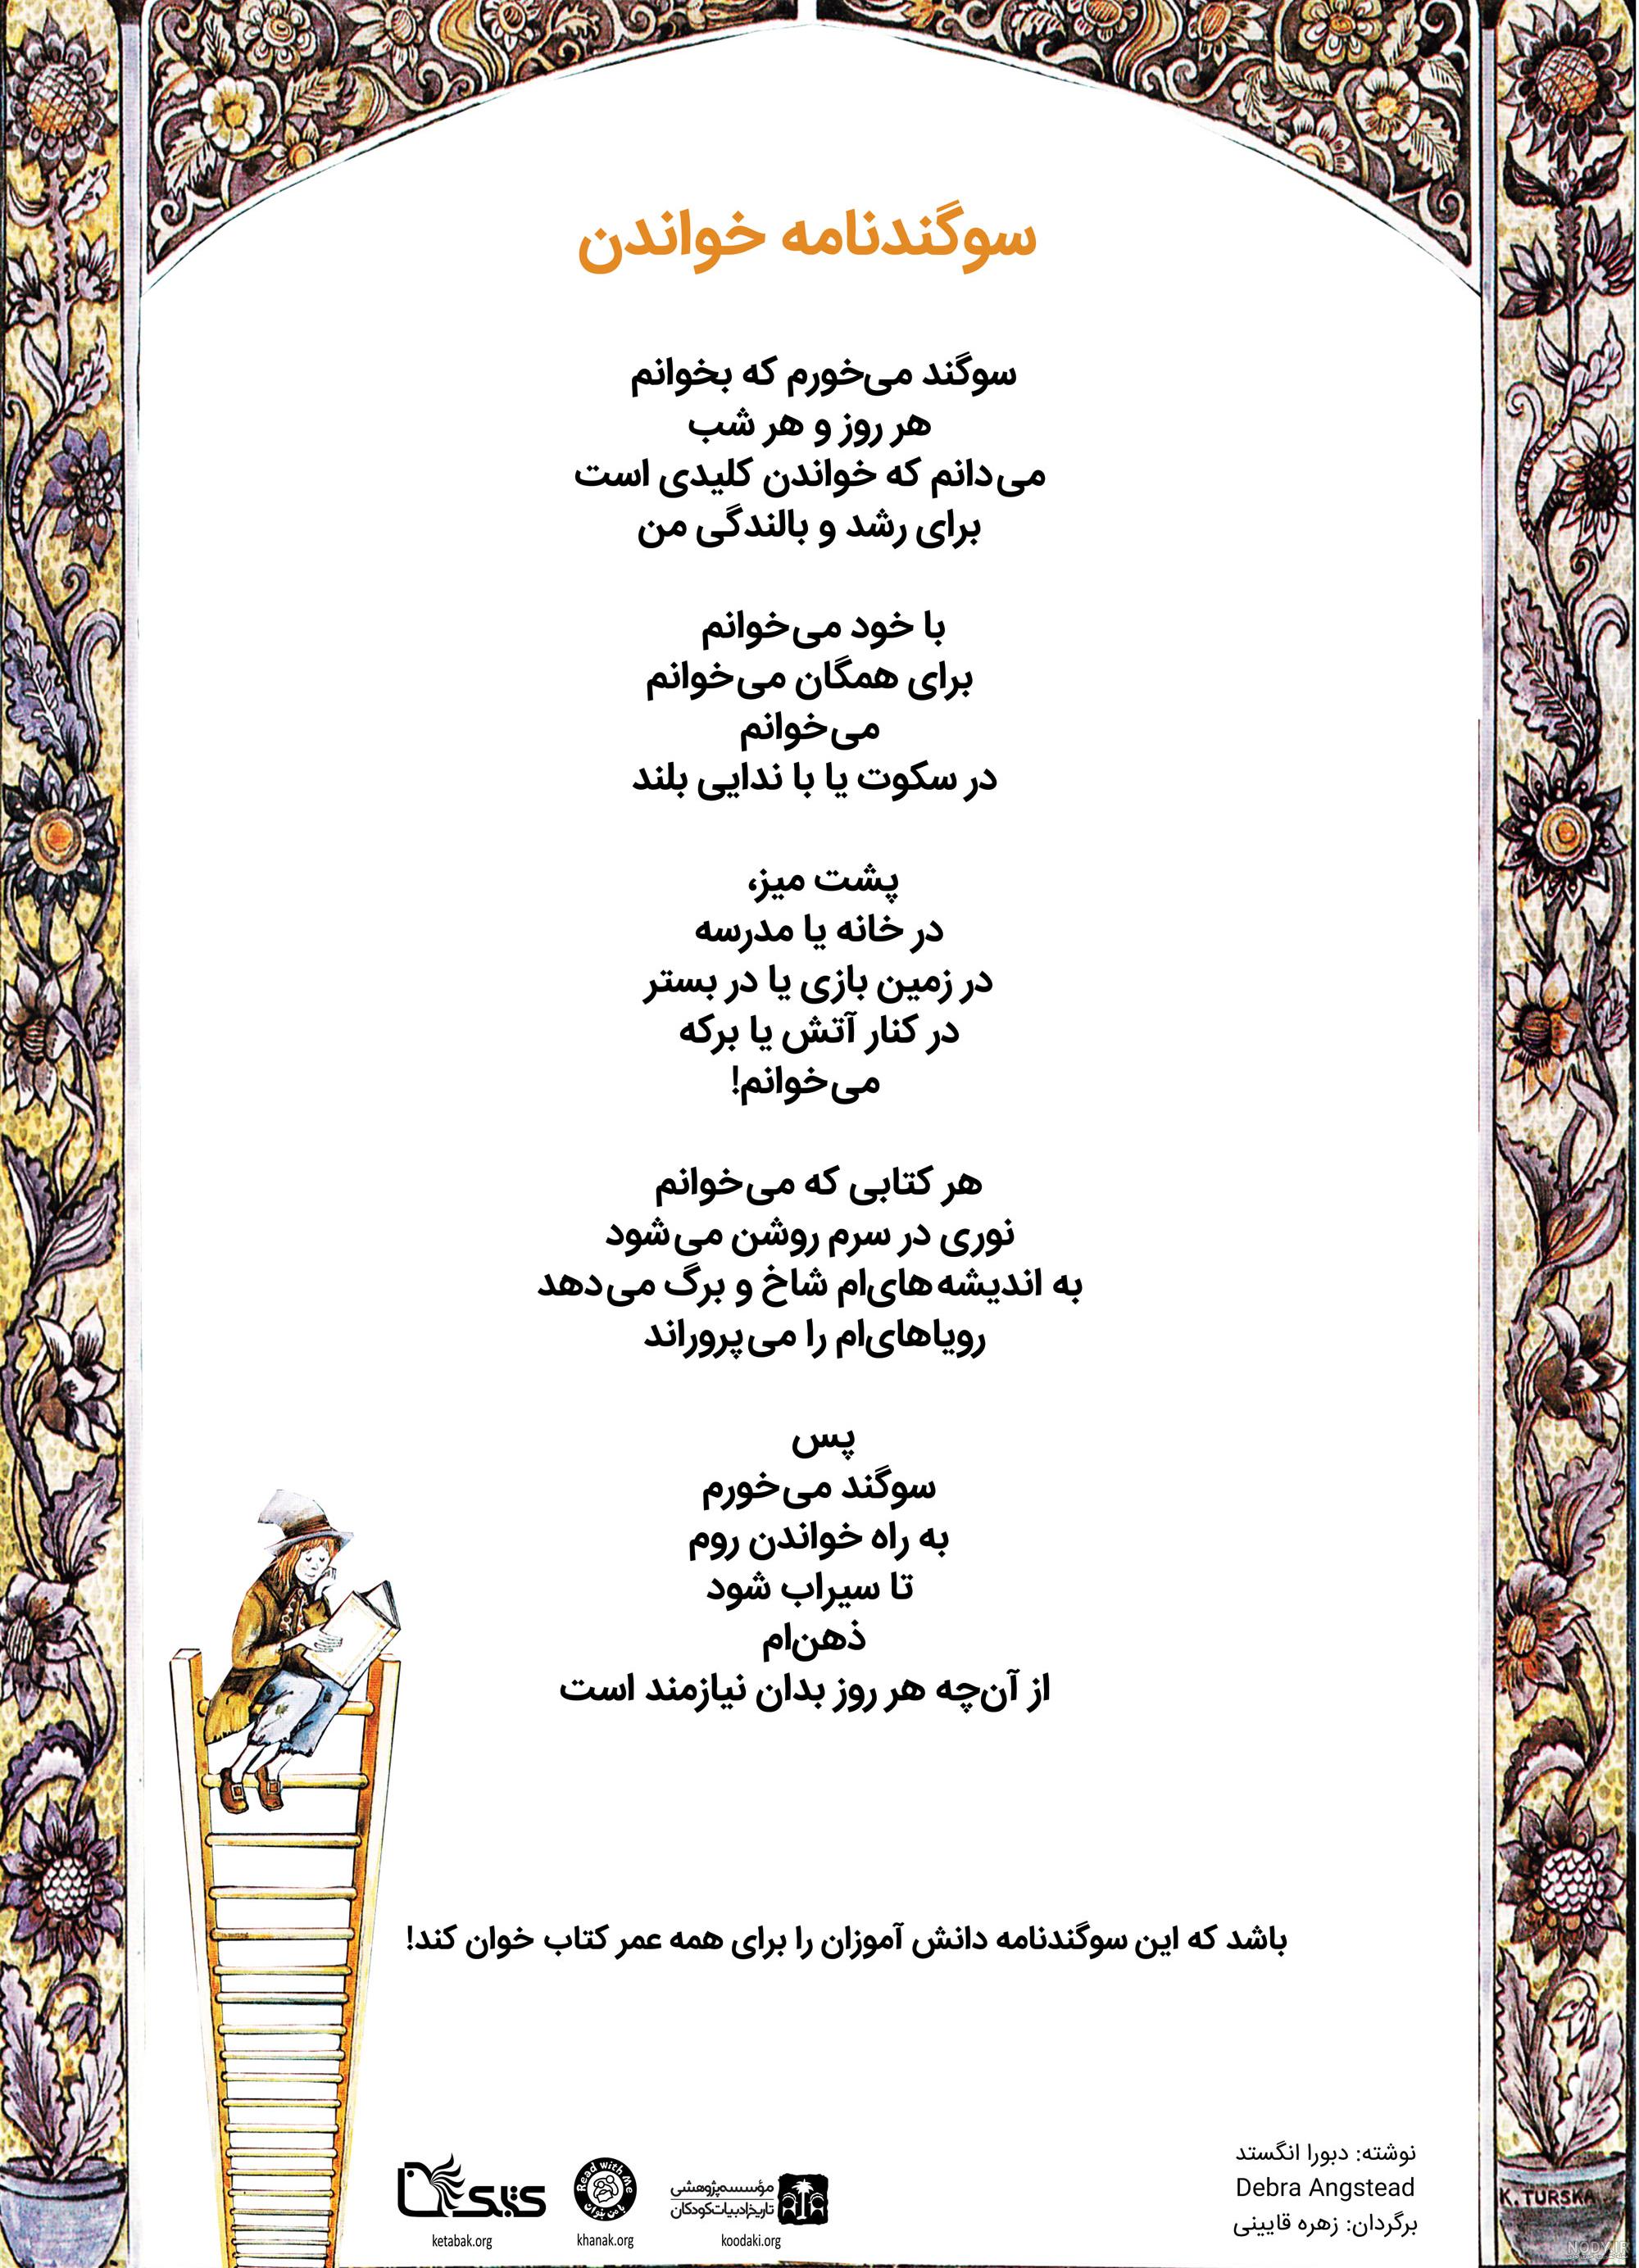 سوگندنامه خواندن
سوگند می‌خورم که بخوانم
هر روز و هر شب
می‌دانم که خواندن کلیدی است
برای رشد و بالندگی من
با خود می‌خوانم
برای همگان می‌خوانم
می‌خوانم
در سکوت یا با ندایی بلند
پشت میز،
در خانه یا مدرسه
در زمین بازی یا در بستر
در کنار آتش یا برکه
می‌خوانم!
هر کتابی که می‌خوانم
نوری در سرم روشن می‌شود
به اندیشه‌های‌ام شاخ و برگ می‌دهد
رویاهای‌ام را می‌پروراند
پس
سوگند می‌خورم
به راه خواندن روم
تا سیراب شود
ذهن‌ام
از آن‌چه هر روز بدان نیازمند است
باشد که این سوگندنامه دانش آموزان را برای همه عمر کتاب خوان کند!
نوشته: دبورا انگستد
Debra Angstead
برگردان: زهره قایینی
مؤسسه پژوهشی
تاریخ ادبیات کودکان
koodaki.org
Read with Me
با من بخوان
khanak.org
کتابک
ketabak.org
K. TURSKA
NODY.IR